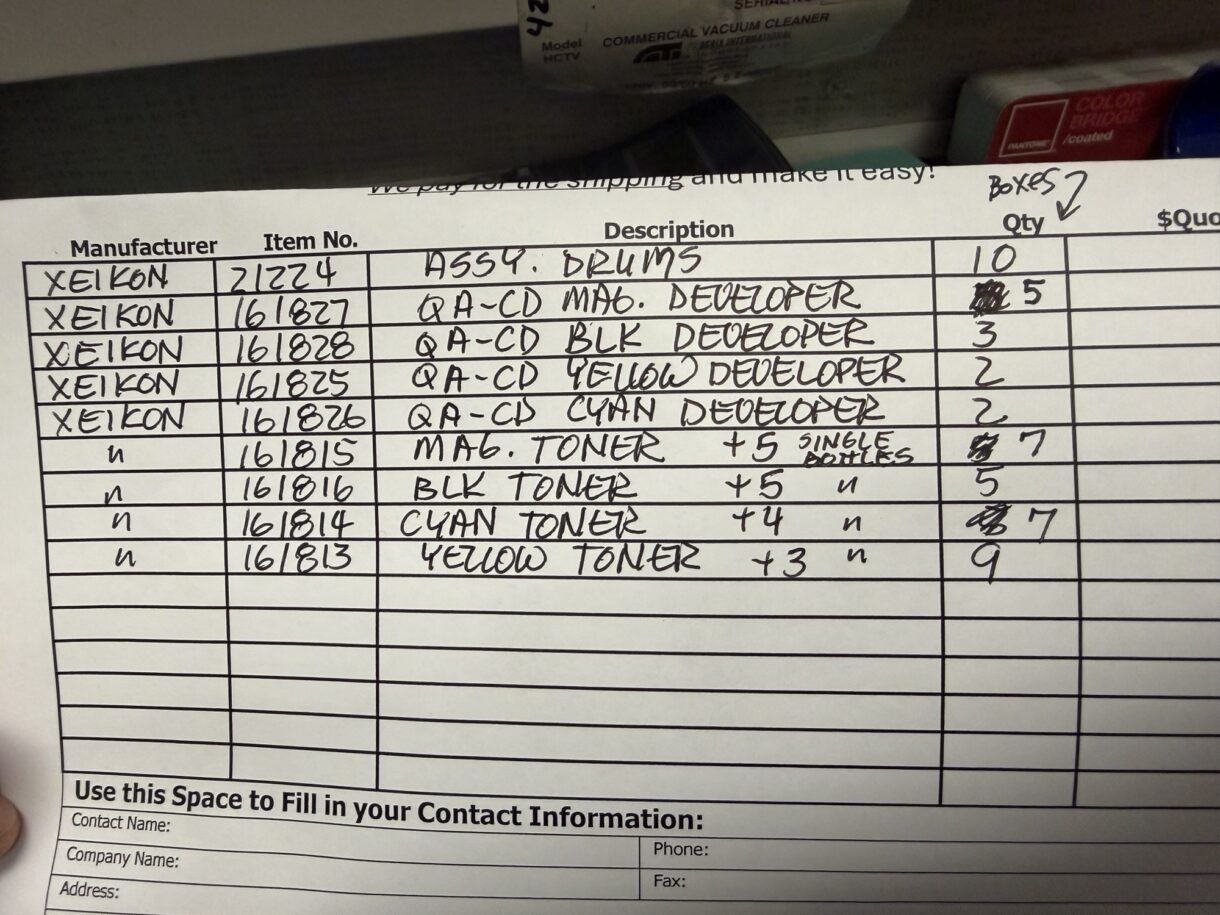 42
SERIAL NO.
COMMERCIAL VACUUM CLEANER
Model
HCTV
INTERNATIONAL
COLOR
BRIDGE
/coated
PANTONE
We pay for the shipping and make it easy!
BOXES
Manufacturer Item No. Description Qty $Quo
XEIKON 21224 ASSY. DRUMS 10
XEIKON 161827 QA-CD MAG. DEVELOPER 5
XEIKON 161828 QA-CD BLK DEVELOPER 3
XEIKON 161825 QA-CD YELLOW DEVELOPER 2
XEIKON 161826 QA-CD CYAN DEVELOPER 2
" 161815 MAG. TONER +5 SINGLE BOTTLES 7
" 161816 BLK TONER +5 " 5
" 161814 CYAN TONER +4 " 7
" 161813 YELLOW TONER +3 " 9
Use this Space to Fill in your Contact Information:
Contact Name:
Phone:
Company Name:
Fax:
Address: